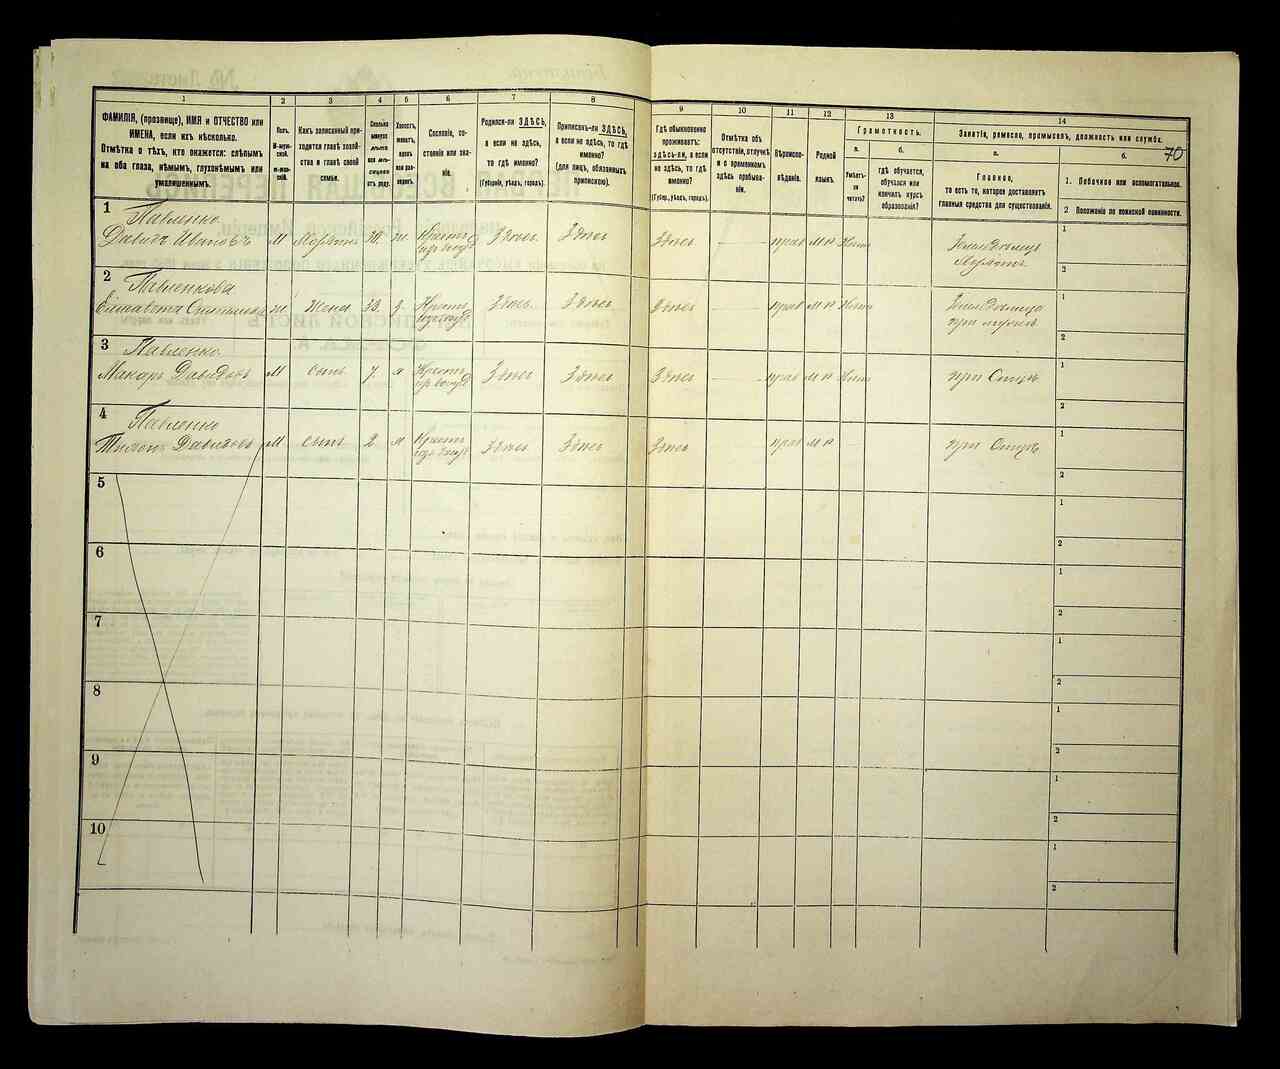 70
1 2 3 4 5 6 7 8 9 10 11 12 13 14
ФАМИЛІЯ, (прозвище), ИМЯ и ОТЧЕСТВО или
ИМЕНА, если ихъ нѣсколько.
Отмѣтка о тѣхъ, кто окажется: слѣпымъ
на оба глаза, нѣмымъ, глухонѣмымъ или
умалишеннымъ.
Полъ.
М-муж-
ской.
Ж-жен-
скій.
Какъ записанный при-
ходится главѣ хозяй-
ства и главѣ своей
семьи.
Сколько
минуло
лѣтъ
или мѣ-
сяцевъ
отъ роду.
Холостъ,
женатъ,
вдовъ
или раз-
веденъ.
Сословіе, со-
стояніе или зва-
ніе.
Родился-ли ЗДѢСЬ,
а если не здѣсь,
то гдѣ именно?
(Губернія, уѣздъ, городъ).
Приписанъ-ли ЗДѢСЬ,
а если не здѣсь, то гдѣ
именно?
(для лицъ, обязанныхъ
припискою).
Гдѣ обыкновенно
проживаетъ:
здѣсь-ли, а если
не здѣсь, то гдѣ
именно?
(Губер., уѣздъ, городъ).
Отмѣтка объ
отсутствіи, отлучкѣ
и о временномъ
здѣсь пребыва-
ніи.
Вѣроиспо-
вѣданіе.
Родной
языкъ.
Грамотность.
а.
Умѣетъ-
ли
читать?
б.
гдѣ обучается,
обучался или
кончилъ курсъ
образованія?
Занятіе, ремесло, промыселъ, должность или служба.
а.
Главное,
то есть то, которое доставляетъ
главныя средства для существованія.
б.
1. Побочное или вспомогательное.
2. Положеніе по воинской повинности.
1
Павленко
Давидъ Ивановъ М 30. ж. Здѣсь Здѣсь Здѣсь — прав м р Нѣтъ
1
2
2
Павленкова
ж. Жена 33. з Здѣсь Здѣсь Здѣсь — прав м р Нѣтъ
при мужѣ
1
2
3
Павленко
Макаръ Давидовъ М сынъ 7. х Здѣсь Здѣсь Здѣсь — прав м р Нѣтъ при Отцѣ
1
2
4
Павленко
Давидовъ М сынъ 2 х Здѣсь Здѣсь Здѣсь прав м р при Отцѣ
1
2
5
1
2
6
1
2
7
1
2
8
1
2
9
1
2
10
1
2